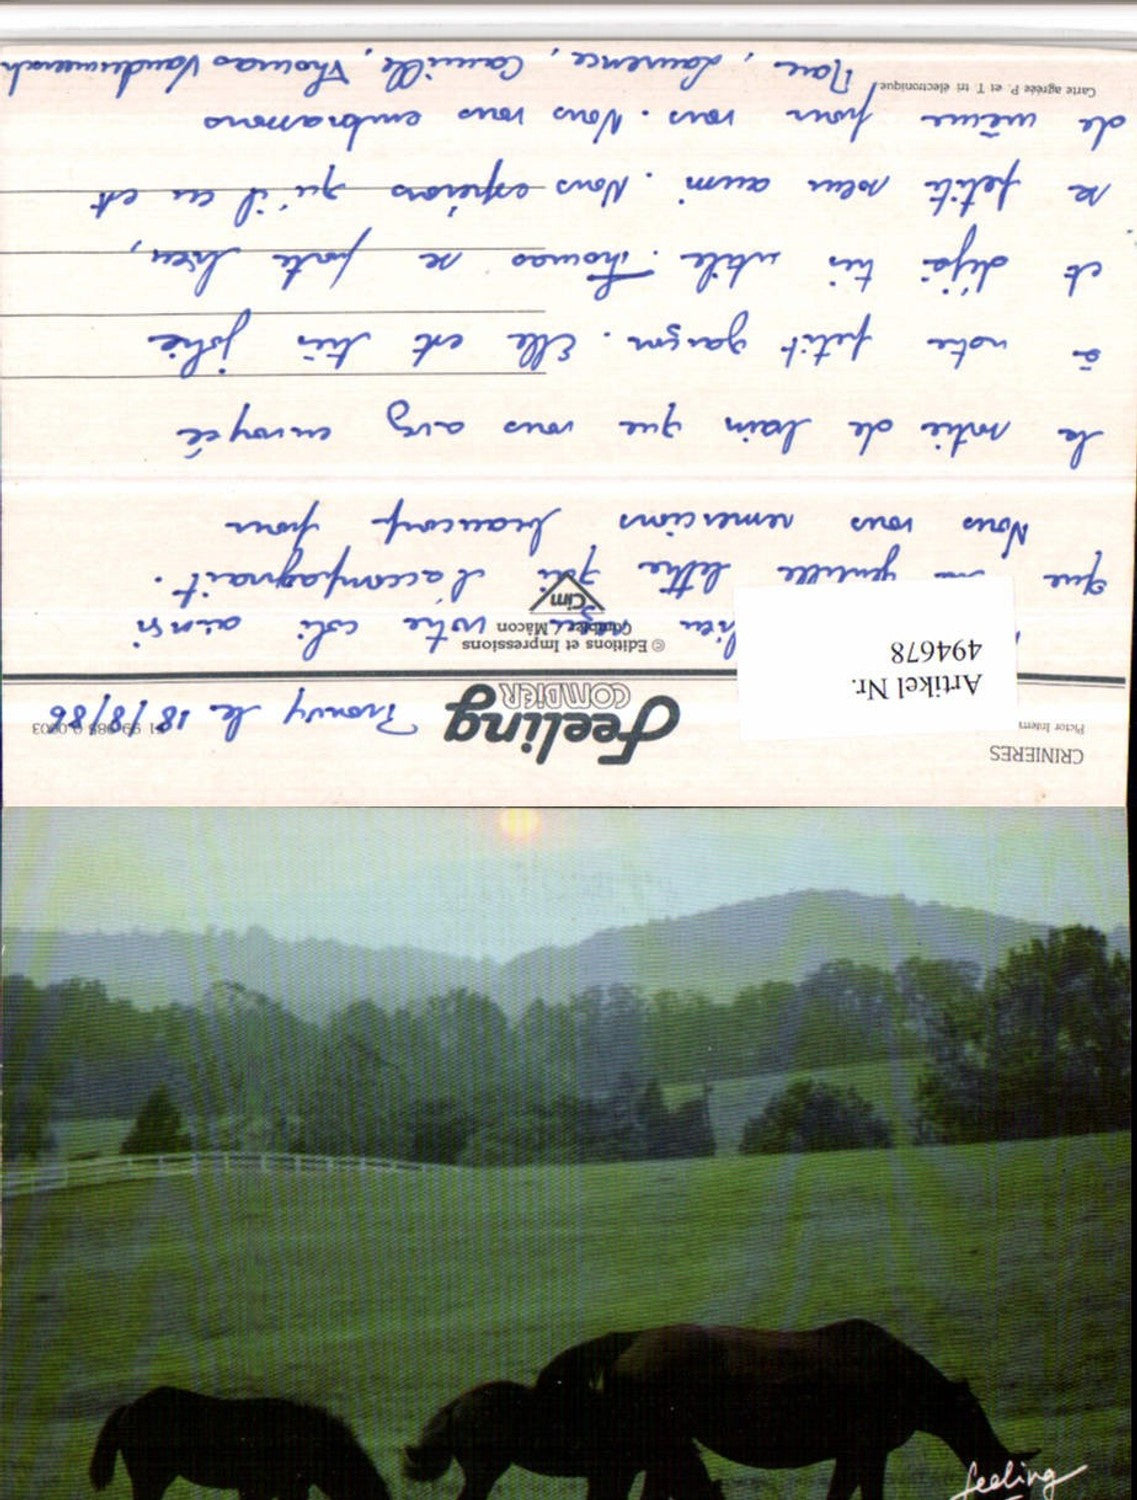 CRINIERES
Pictor Intern
feeling
COMBIER
Artikel Nr.
494678
© Editions et Impressions
Combier / Mâcon
Cim
le 18/8/86
bien reçu votre colis ainsi
que gentille lettre qui l'accompagnait.
Nous vous remercions beaucoup pour
la sortie de bain que vous avez envoyée
à notre petit garçon. Elle est très jolie
et déjà très utile. Thomas se porte bien,
sa petite soeur aussi. Nous espérons qu'il en est
de même pour vous. Nous vous embrassons
Marc, Laurence, Camille, Thomas
Carte agréée P. et T. tri électronique
feeling